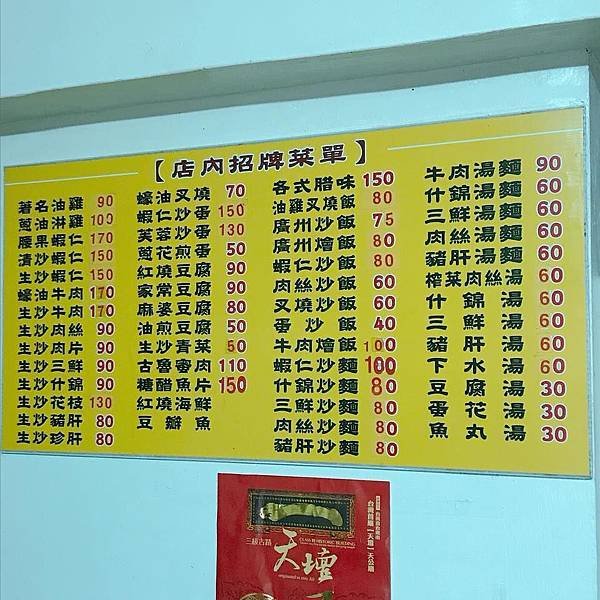 【店內招牌菜單】
著名油雞 90
蔥油淋雞 100
腰果蝦仁 170
清炒蝦仁 150
生炒蝦仁 150
蠔油牛肉 170
生炒牛肉 170
生炒肉絲 90
生炒肉片 90
生炒三鮮 90
生炒什錦 90
生炒花枝 130
生炒豬肝 80
生炒珍肝 80
蠔油叉燒 70
蝦仁炒蛋 150
芙蓉炒蛋 130
蔥花煎蛋 50
紅燒豆腐 90
家常豆腐 90
麻婆豆腐 80
油煎豆腐 50
生炒青菜 50
古魯肉 110
糖醋魚片 150
紅燒海鮮
豆瓣魚
各式腊味 150
油雞叉燒飯 80
廣州炒飯 75
廣州燴飯 80
蝦仁炒飯 80
肉絲炒飯 60
叉燒炒飯 60
蛋炒飯 40
牛肉燴飯 100
蝦仁炒麵 100
什錦炒麵 80
三鮮炒麵 80
肉絲炒麵 80
豬肝炒麵 80
牛肉湯麵 90
什錦湯麵 60
三鮮湯麵 60
肉絲湯麵 60
豬肝湯麵 60
榨菜肉絲湯 60
什錦湯 60
三鮮湯 60
豬肝湯 60
下水湯 60
豆腐湯 30
蛋花湯 30
魚丸湯 30
三級古蹟
CLASS III HISTORIC BUILDING
天壇
台灣首廟【天壇】天公廟